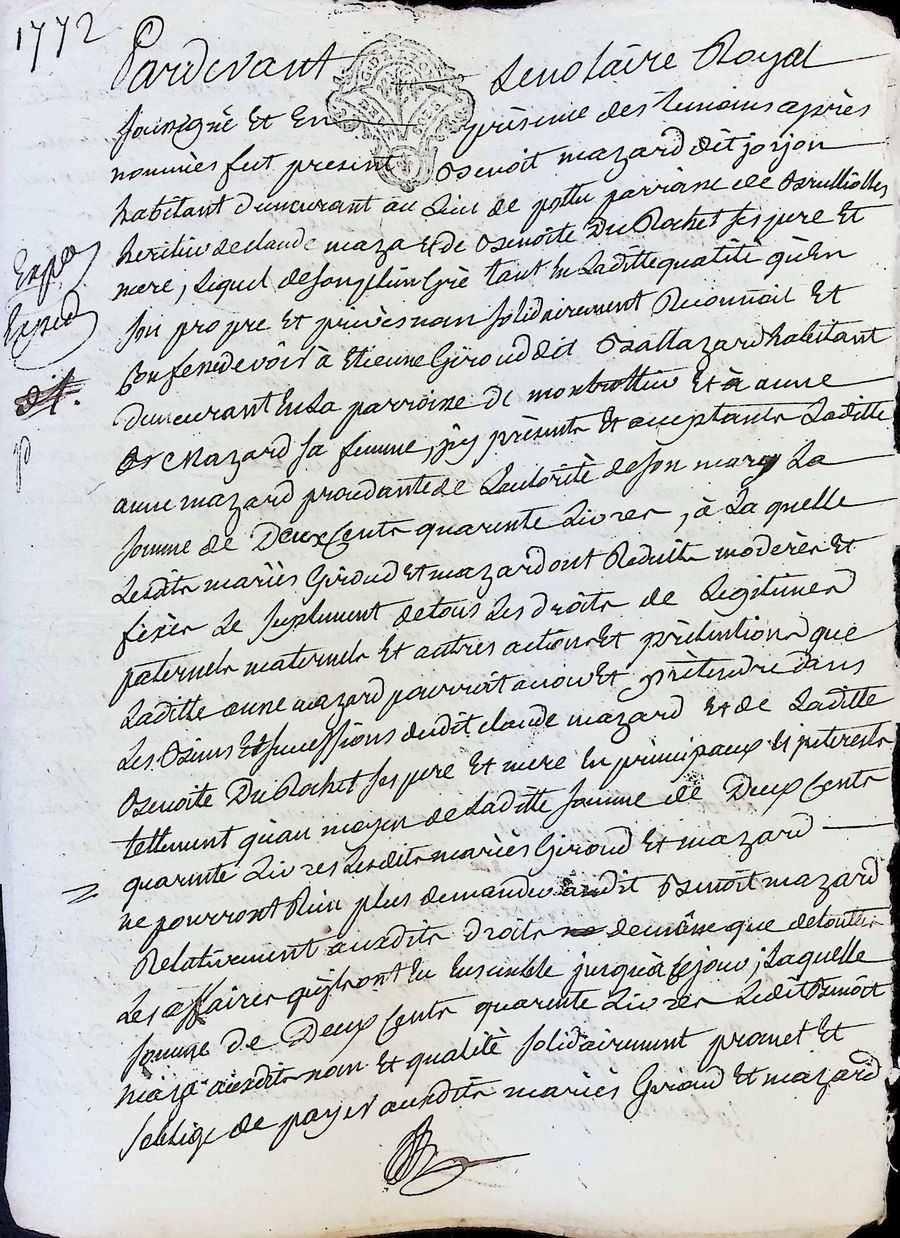 1772
Pardevant Lenotaire Royal
soussigné Et En présence des temoins après
nommés fut present Benoit mazard dit jonjon
habitant demeurant au Lieu de parroisse de Brullioles
heritier de claude maza Et de Benoite Du Rochet ses pere Et
mere, Lequel de son plein Gré tant En Laditte qualité qu'En
son propre Et privés nom solidairement Reconnoit Et
Confesse devoir à Etienne Giroud dit Baltazard habitant
demeurant En La parroisse de montrottier Et à anne
mazard sa femme, icy présents Et acceptants Laditte
anne mazard procedante de L'autorité de son mary La
somme de Deux Cents quarente Livres, à Laquelle
Lesdits mariés Giroud Et mazard ont Reduits moderés Et
fixés Le suplement de tous Les droits de Legitimes
paternels maternels Et autres actions Et prétentions que
Laditte anne mazard pourroit avoir Et prétendre dans
Les Biens Et successions dudit claude mazard Et de Laditte
Benoite Du Rochet ses pere Et mere En principaux Et interests
tellement qu'au moyen de Laditte somme de Deux Cents
quarente Livres Lesdits mariés Giroud Et mazard
ne pourront Rien plus demander audit Benoit mazard
Relativement auxdits droits de même que de toutes
Les affaires qu'ils ont Eu Ensemble jusqu'à ce jour; Laquelle
somme de Deux Cents quarente Livres Ledit Benoit
mazard auxdits nom Et qualité solidairement promet Et
s'oblige de payer auxdits mariés Giroud Et mazard
Exp
Exped